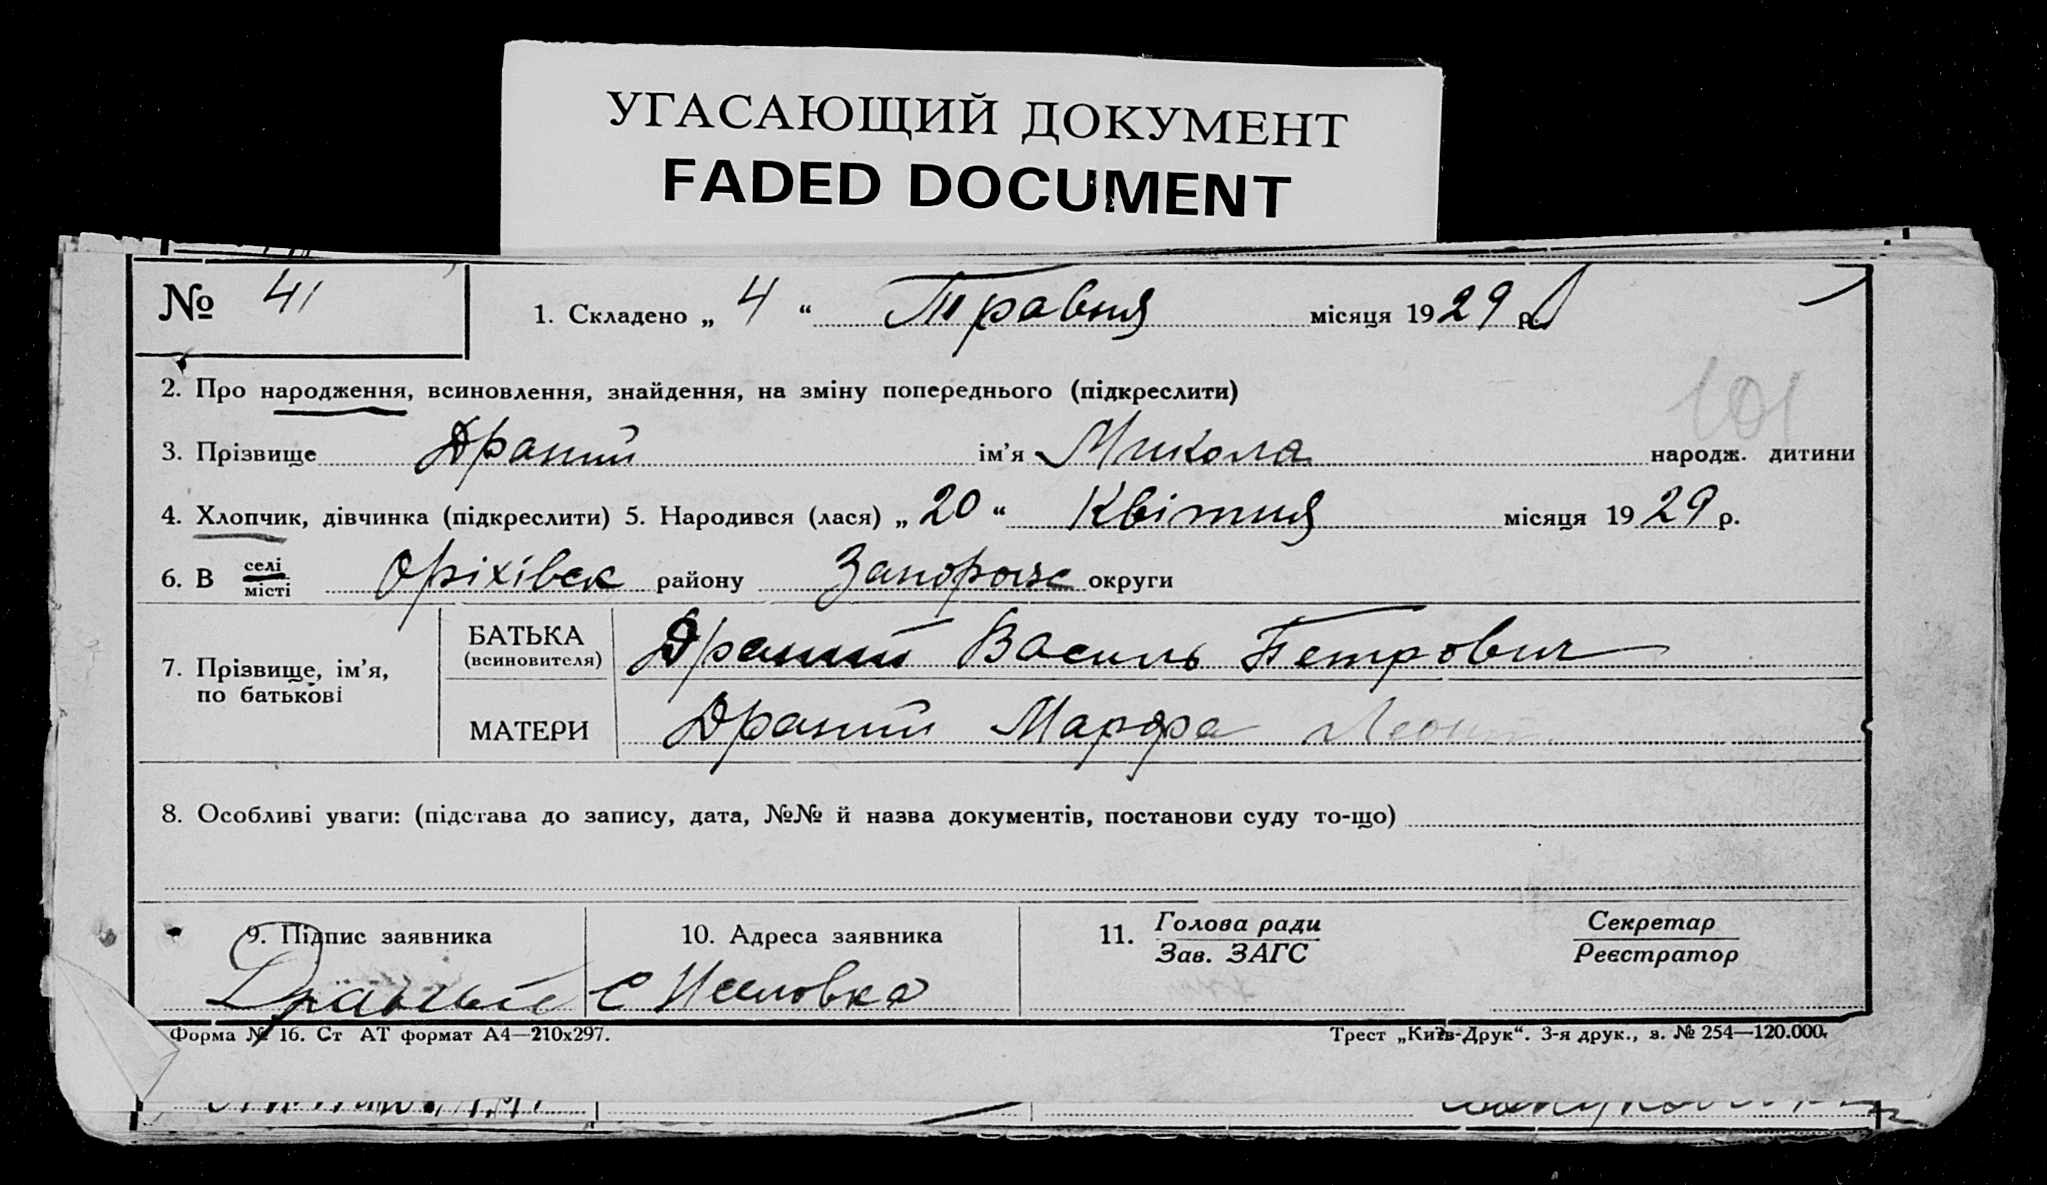 УГАСАЮЩИЙ ДОКУМЕНТ
FADED DOCUMENT
№ 41
1. Складено „ 4 “ Травня місяця 1929 р.
101
2. Про народження, всиновлення, знайдення, на зміну попереднього (підкреслити)
3. Прізвище Драний ім'я Микола народж. дитини
4. Хлопчик, дівчинка (підкреслити) 5. Народився (лася) „ 20 “ Квітня місяця 1929 р.
6. В селі
місті Оріхівск району Запорізьк округи
7. Прізвище, ім'я,
по батькові
БАТЬКА
(всиновителя)
Драний Василь Петрович
МАТЕРИ
Драний Марфа Леонт
8. Особливі уваги: (підстава до запису, дата, №№ й назва документів, постанови суду то-що)
9. Підпис заявника
Драный
10. Адреса заявника
с
11. Голова ради
Зав. ЗАГС
Секретар
Реєстратор
Форма № 16. Ст АТ формат А4—210х297.
Трест „Київ-Друк“. 3-я друк., з. № 254—120.000.